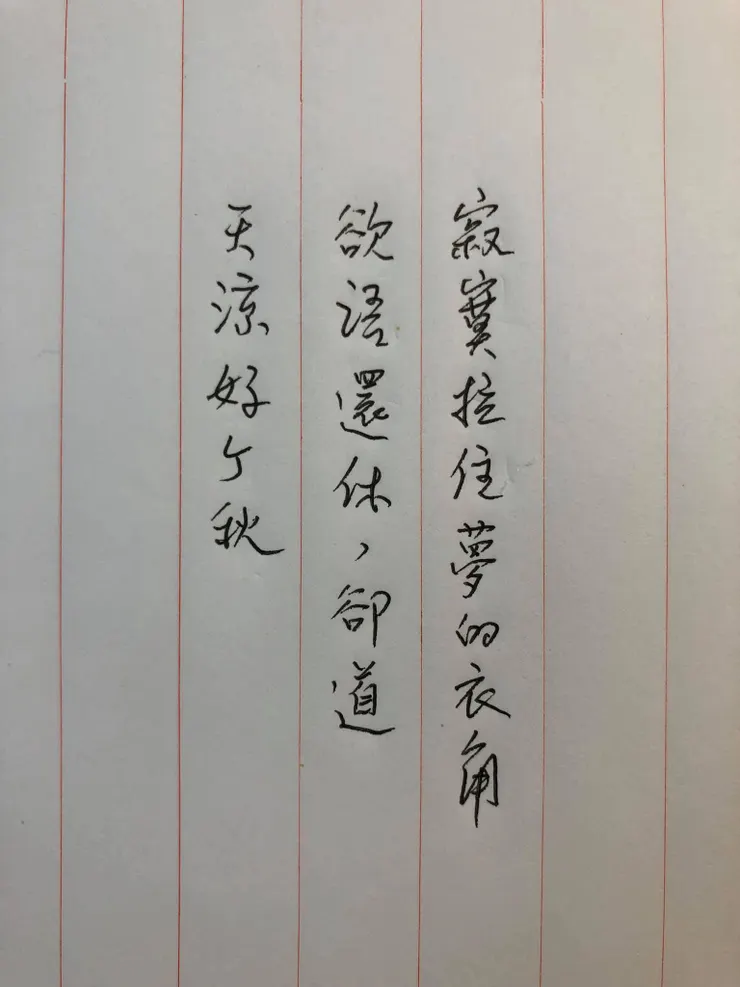 寂寞拉住夢的衣角
欲語還休，卻道
天涼好个秋